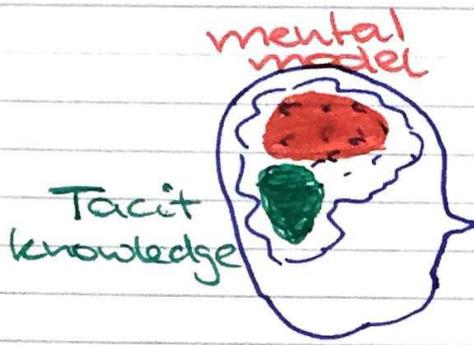 mental
model
Tacit
knowledge